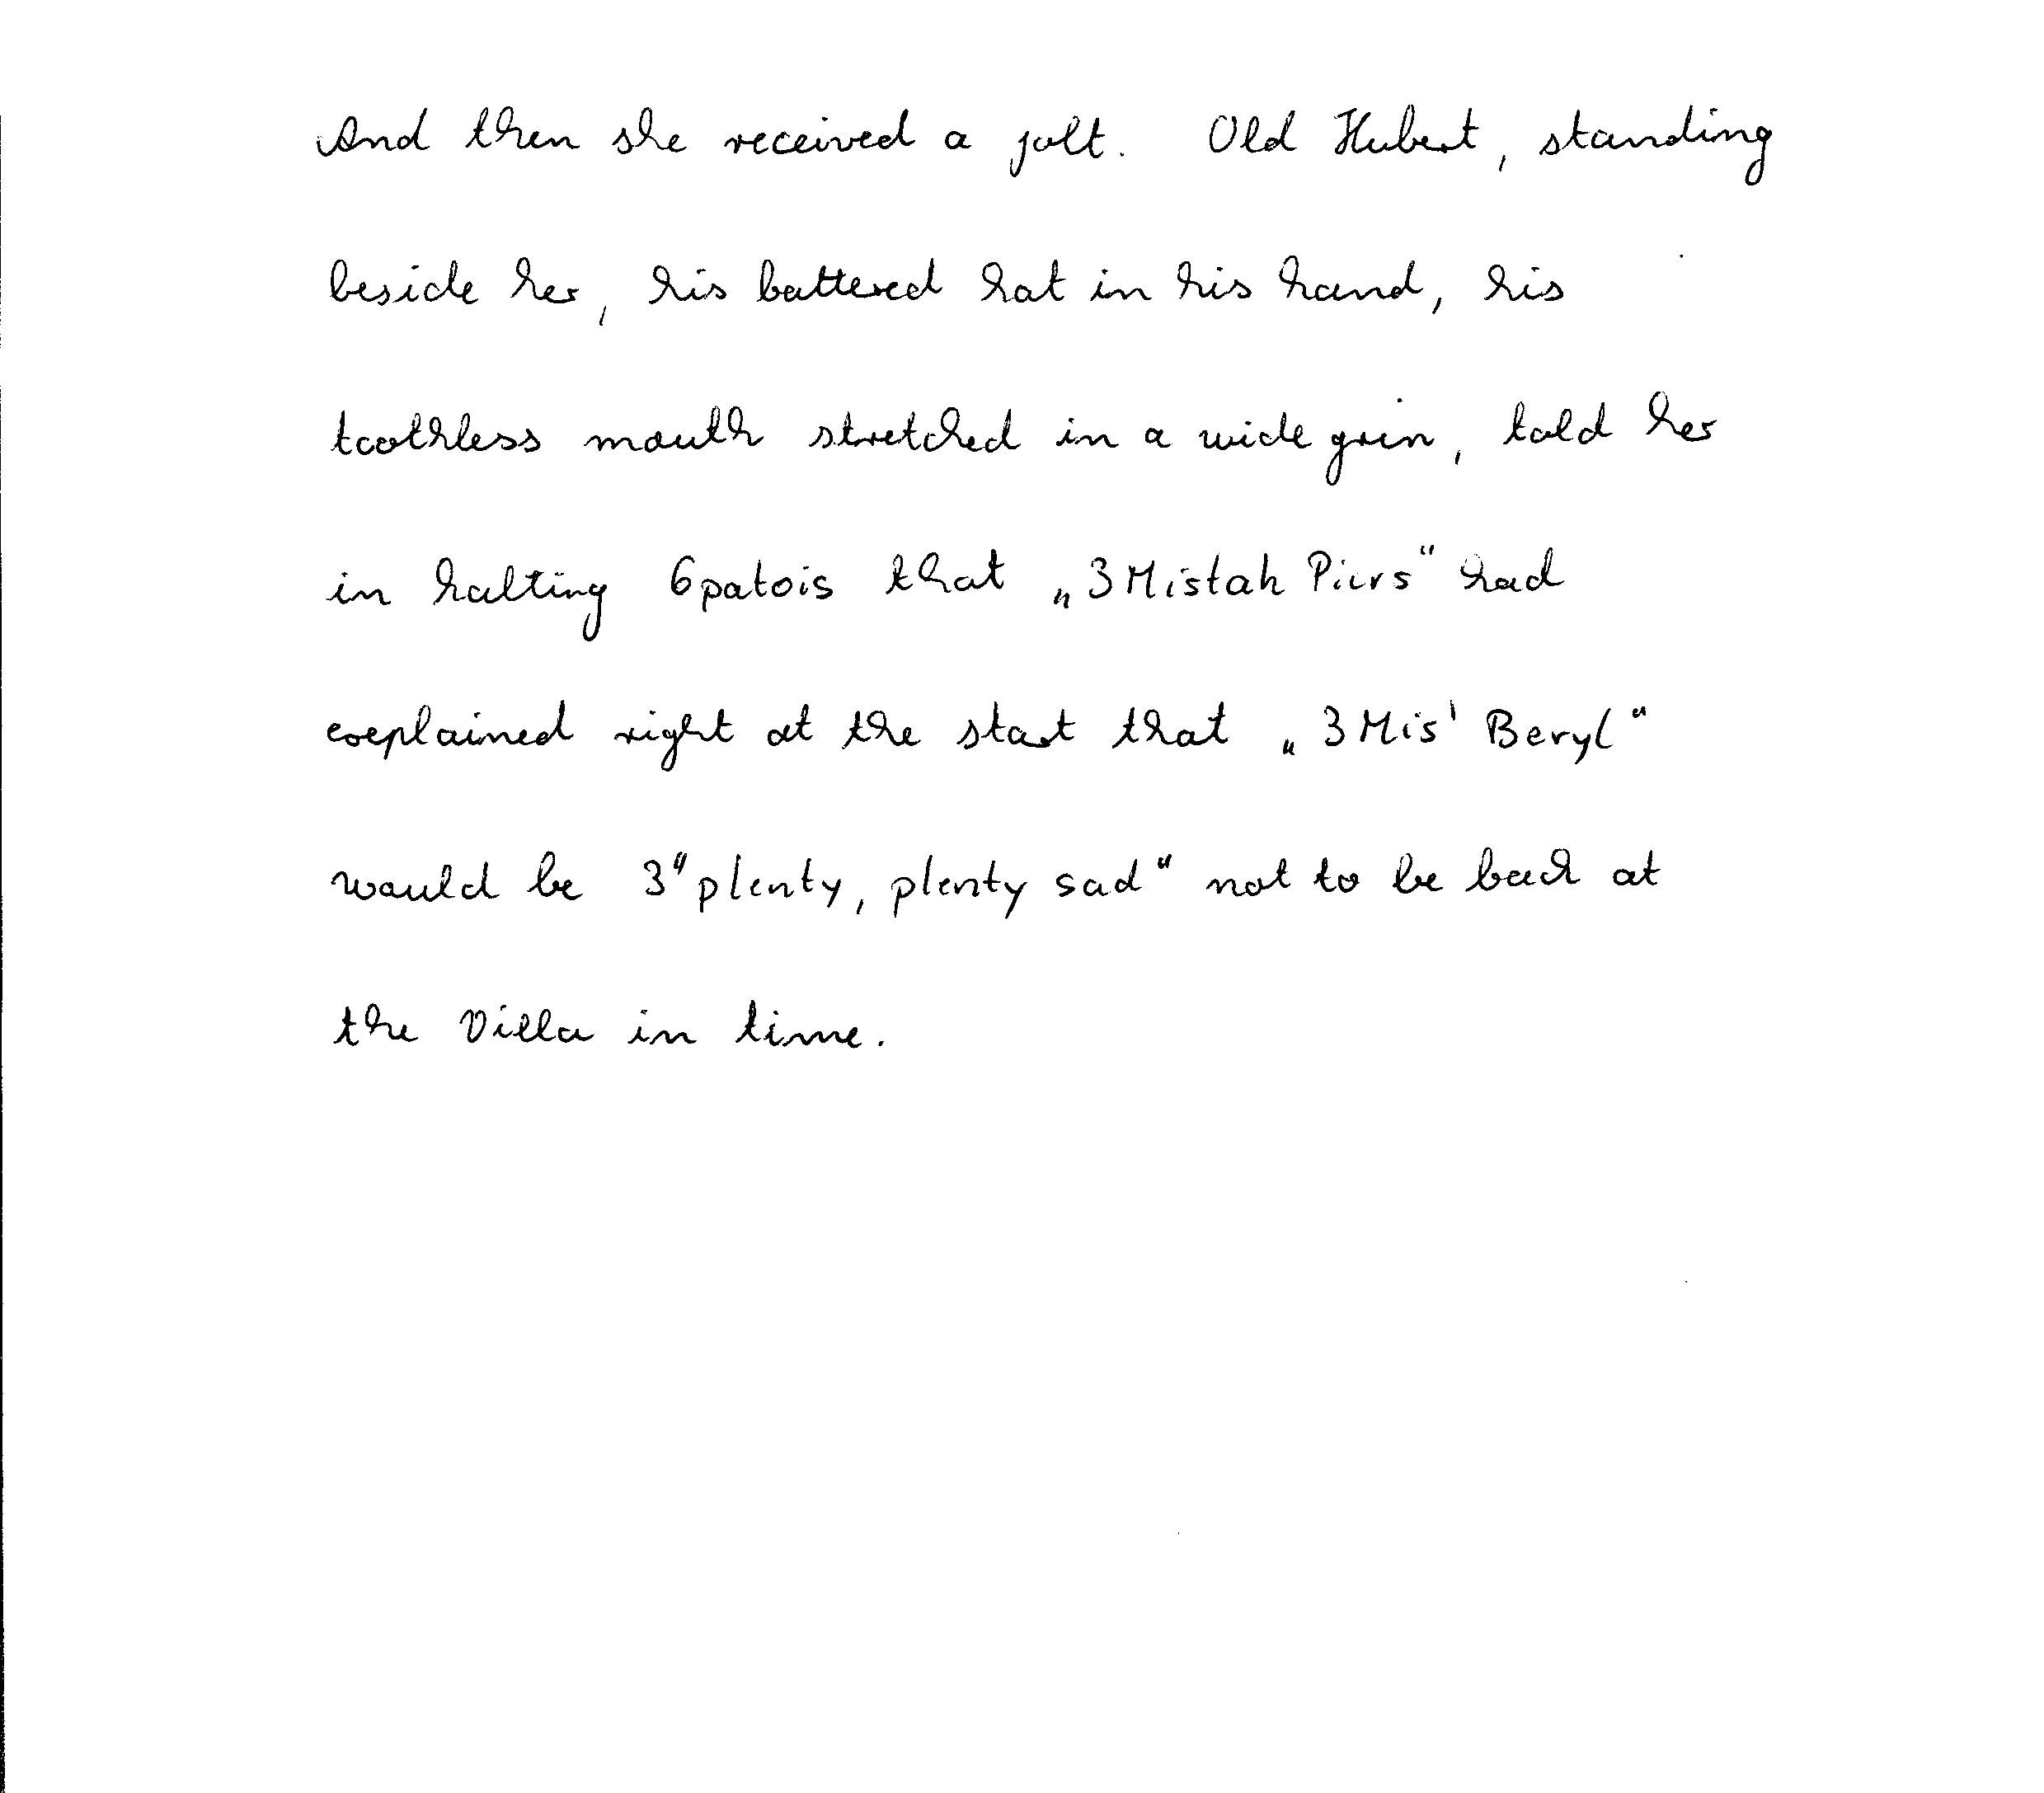 And then she received a jolt. Old Hubert, standing
beside her, his battered hat in his hand, his
toothless mouth stretched in a wide grin, told her
in halting 6patois that „3Mistah Piers“ had
explained right at the start that „3Mis' Beryl“
would be 3“plenty, plenty sad“ not to be back at
the Villa in time.